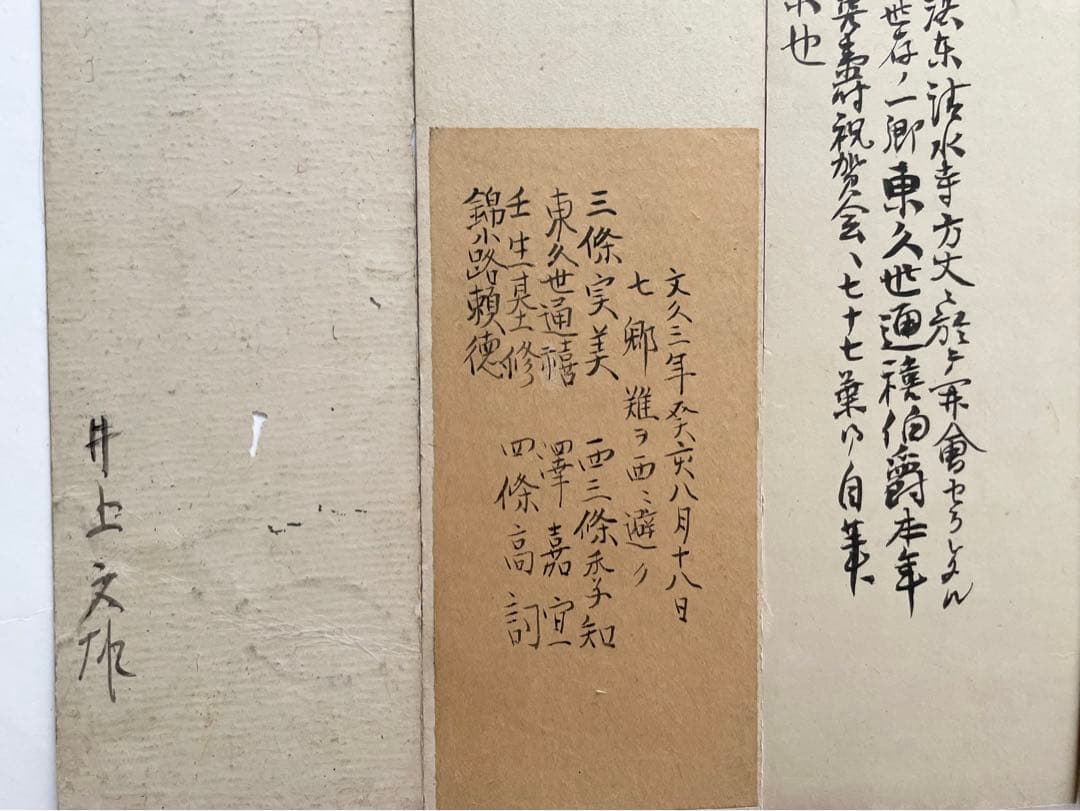 洛東清水寺方丈ニ於テ開會セラレタル
世存ノ一卿東久世通禧伯爵本年
壽府祝賀会、七十七葉ノ自筆、
也
文久三年癸亥八月十八日
七卿難ヲ西ニ避ク
三條実美 西三條季知
東久世通禧 澤嘉宣
壬生基修 四條高詞
錦小路頼徳
井上文雄